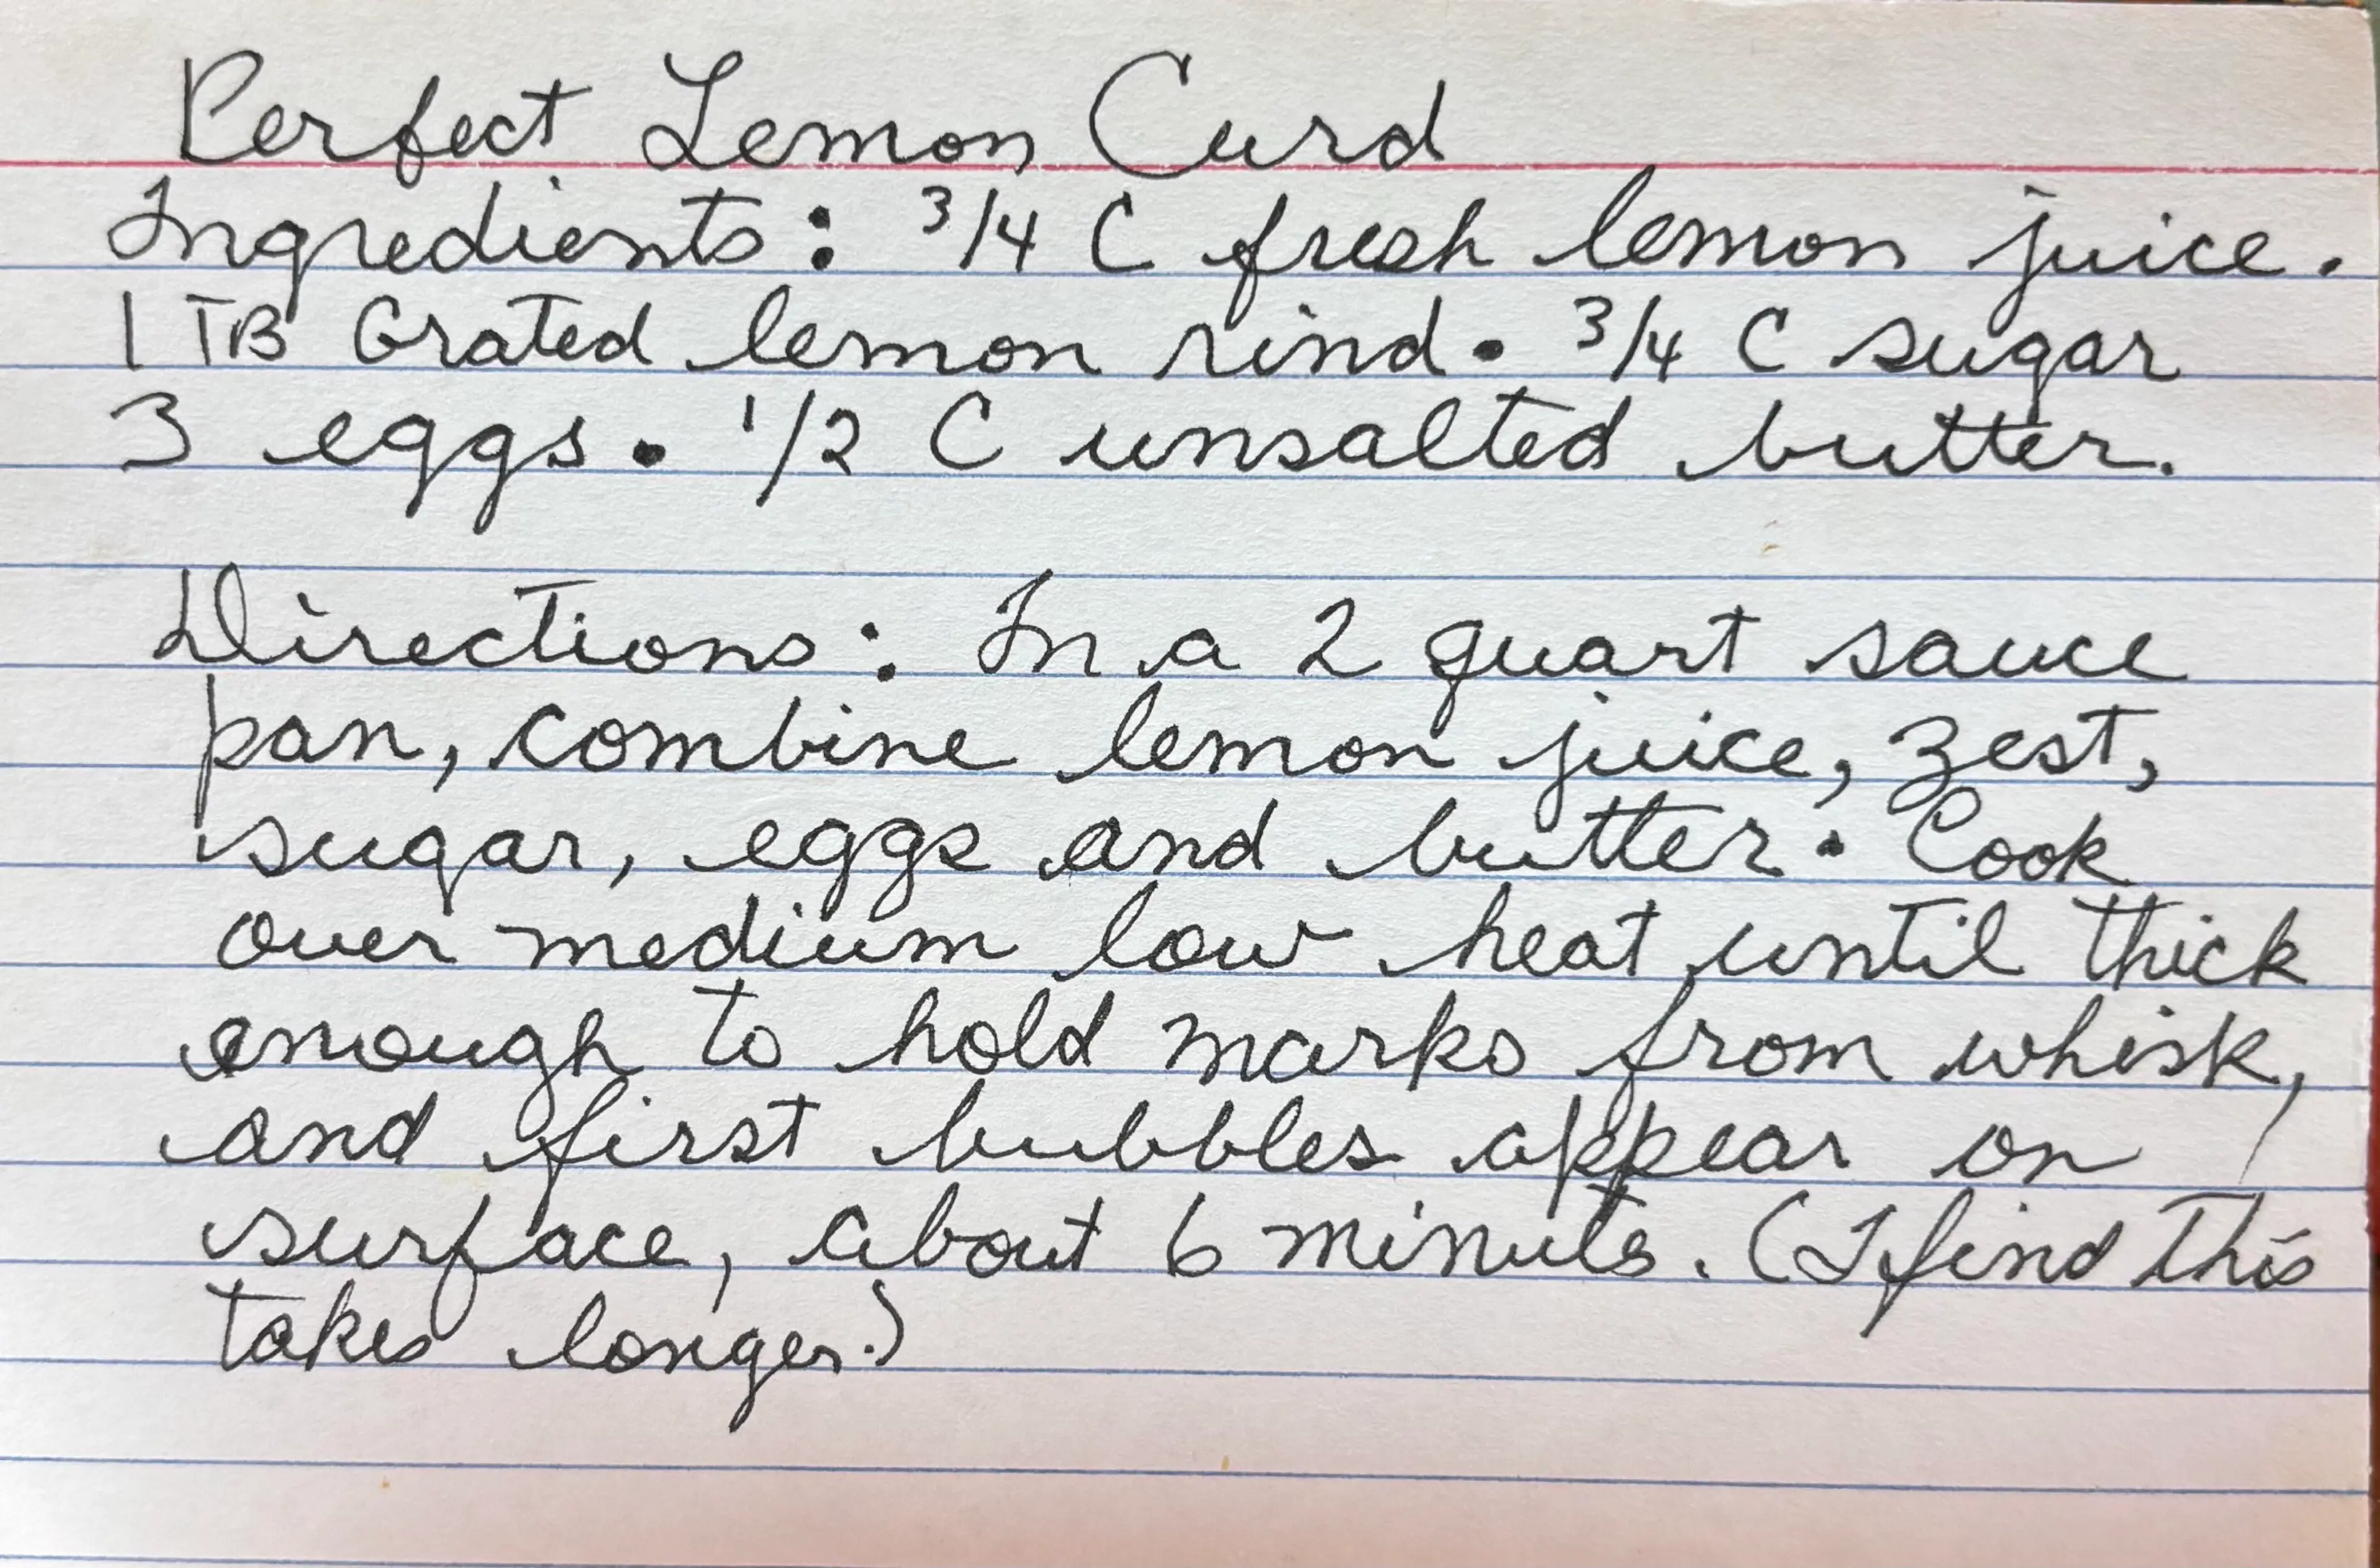 Perfect Lemon Curd
Ingredients: 3/4 C fresh lemon juice.
1 TB Grated lemon rind. 3/4 C sugar
3 eggs. 1/2 C unsalted butter.
Directions: In a 2 quart sauce
pan, combine lemon juice, zest,
sugar, eggs and butter. Cook
over medium low heat until thick
enough to hold marks from whisk,
and first bubbles appear on
surface, about 6 minutes. (I find this
takes longer.)